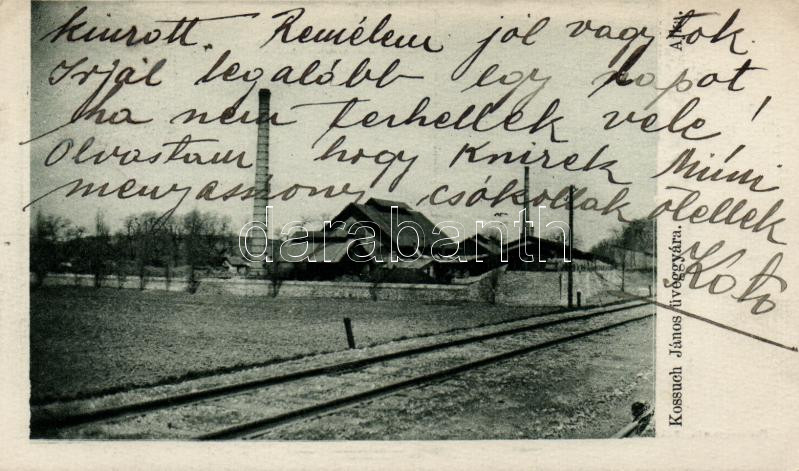 kinrott. Remélem jól vagytok
Irjál legalább egy lapot
ha nem terhellek vele!
Olvastam hogy Knirek Mimi
menyasszony csókollak ölellek
Kató
Kossuch János üveggyára.
darabanth.com